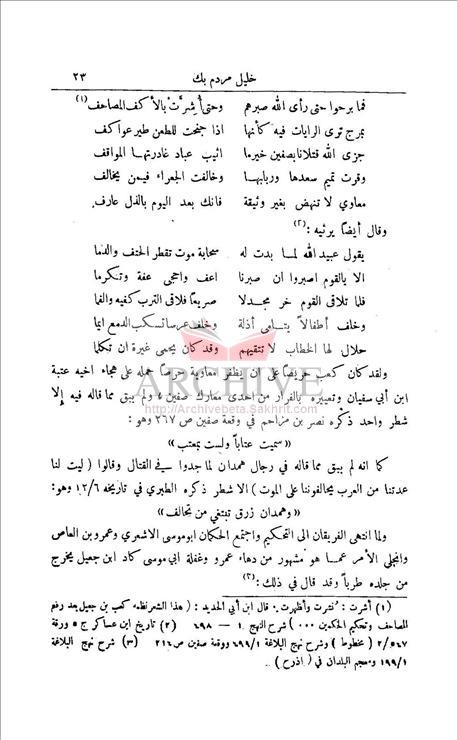 خليل مردم بك ٢٣
فما برحوا حتى رأى الله صبرهم وحتى أُشرَّت بالأكف المصاحف (١)
بمرج ترى الرايات فيه كأنها اذا جنحت للطعن طير عواكف
جزى الله قتلانا بصفين خير ما اثيب عباد غادرتها المواقف
وقرت تميم سعدها وربابها وخالفت الجعراء فيمن يخالف
معاوي لا تنهض بغير وثيقة فانك بعد اليوم بالذل عارف
وقال أيضاً يرثيه : (٢)
يقول عبيد الله لمــا بدت له سحابة موت تقطر الحتف والدما
الا يالقوم اصبروا ان صبرنا اعف واحجى عفة وتكرما
فلما تلاقى القوم خر مجدلا صريعاً فلاقى الترب كفيه والفما
وخلف أطفالاً يتامى أذلة وخلف عرسا تسكب الدمع ايما
حلال لها الخطاب لا تتقيهم وقد كان يحمى غيرة ان تكلما
ولقد كان كعب حريصاً على ان يظفر معاوية حرصاً حمله على هجاء اخيه عتبة
ابن ابي سفيان وتعييره بالفرار من احدى معارك صفين ، ولم يبق مما قاله فيه إلا
شطر واحد ذكره نصر بن مزاحم في وقعة صفين ص ٢٦٧ وهو :
« سميت عتاباً ولست بمعتب »
كما انه لم يبق مما قاله في رجال همدان لما جدوا في القتال وقالوا ( ليت لنا
عدتنا من العرب يحالفوننا على الموت ) الا شطر ذكره الطبري في تاريخه ١٢/٦ وهو :
« وهمدان زرق تبتغي من تحالف »
ولما انتهى الفريقان الى التحكيم واجتمع الحكمان ابوموسى الاشعري وعمرو بن العاص
وانجلى الأمر عمــا هو مشهور من دهاء عمرو وغفلة ابي موسى كاد ابن جعيل يخرج
من جلده طرباً وقد قال في ذلك : (٣)
(١) أشرت : نشرت وأظهرت . قال ابن أبي الحديد : ( هذا الشعر نظمه كعب بن جعيل بعد رفع
المصاحف وتحكيم الحكمين ٠٠٠ ) شرح النهج ١ — ٦٩٨ (٢) تاريخ ابن عساكر ج ٥ ورقة
٥٦٧ / ٢ ( مخطوط ) وشرح نهج البلاغة ٦٩٩/١ ووقعة صفين ص ٢١٦ (٣) شرح نهج البلاغة
١٩٩/١ ومعجم البلدان في ( اذرح ) .
ARCHIVE
http://Archivebeta.Sakhrit.com